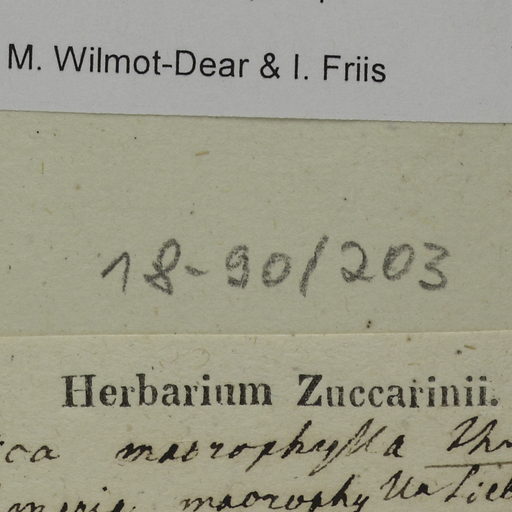 M. Wilmot-Dear & I. Friis
18-90/203
Herbarium Zuccarinii.
macrophylla Thu
macrophylla Sieb